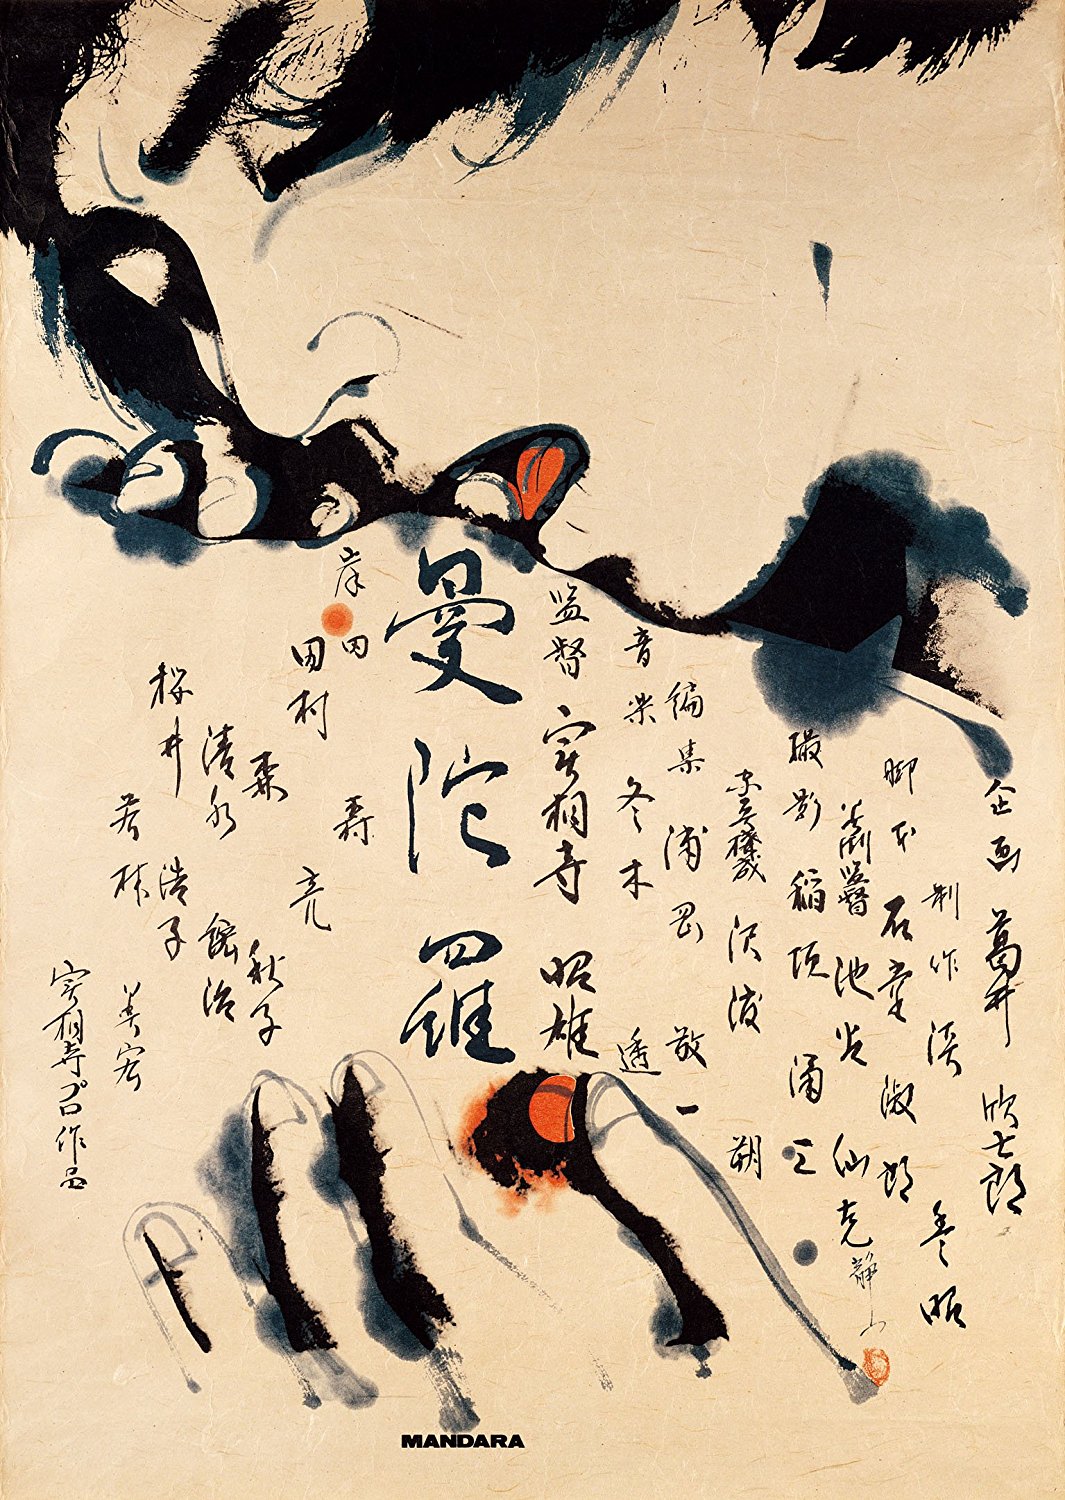 企画 葛井 欣士郎
制作 淡 豊昭
脚本 石堂 淑郎
美術監督 池谷 仙克
静山
撮影 稲垣 涌三
沢渡 朔
編集 浦岡 敬一
音楽 冬木 透
監督 实相寺 昭雄
曼陀羅
岸田 森
田村 亮
森 秋子
清水 紘治
桜井 浩子
若林 美宏
实相寺プロ作品
MANDARA